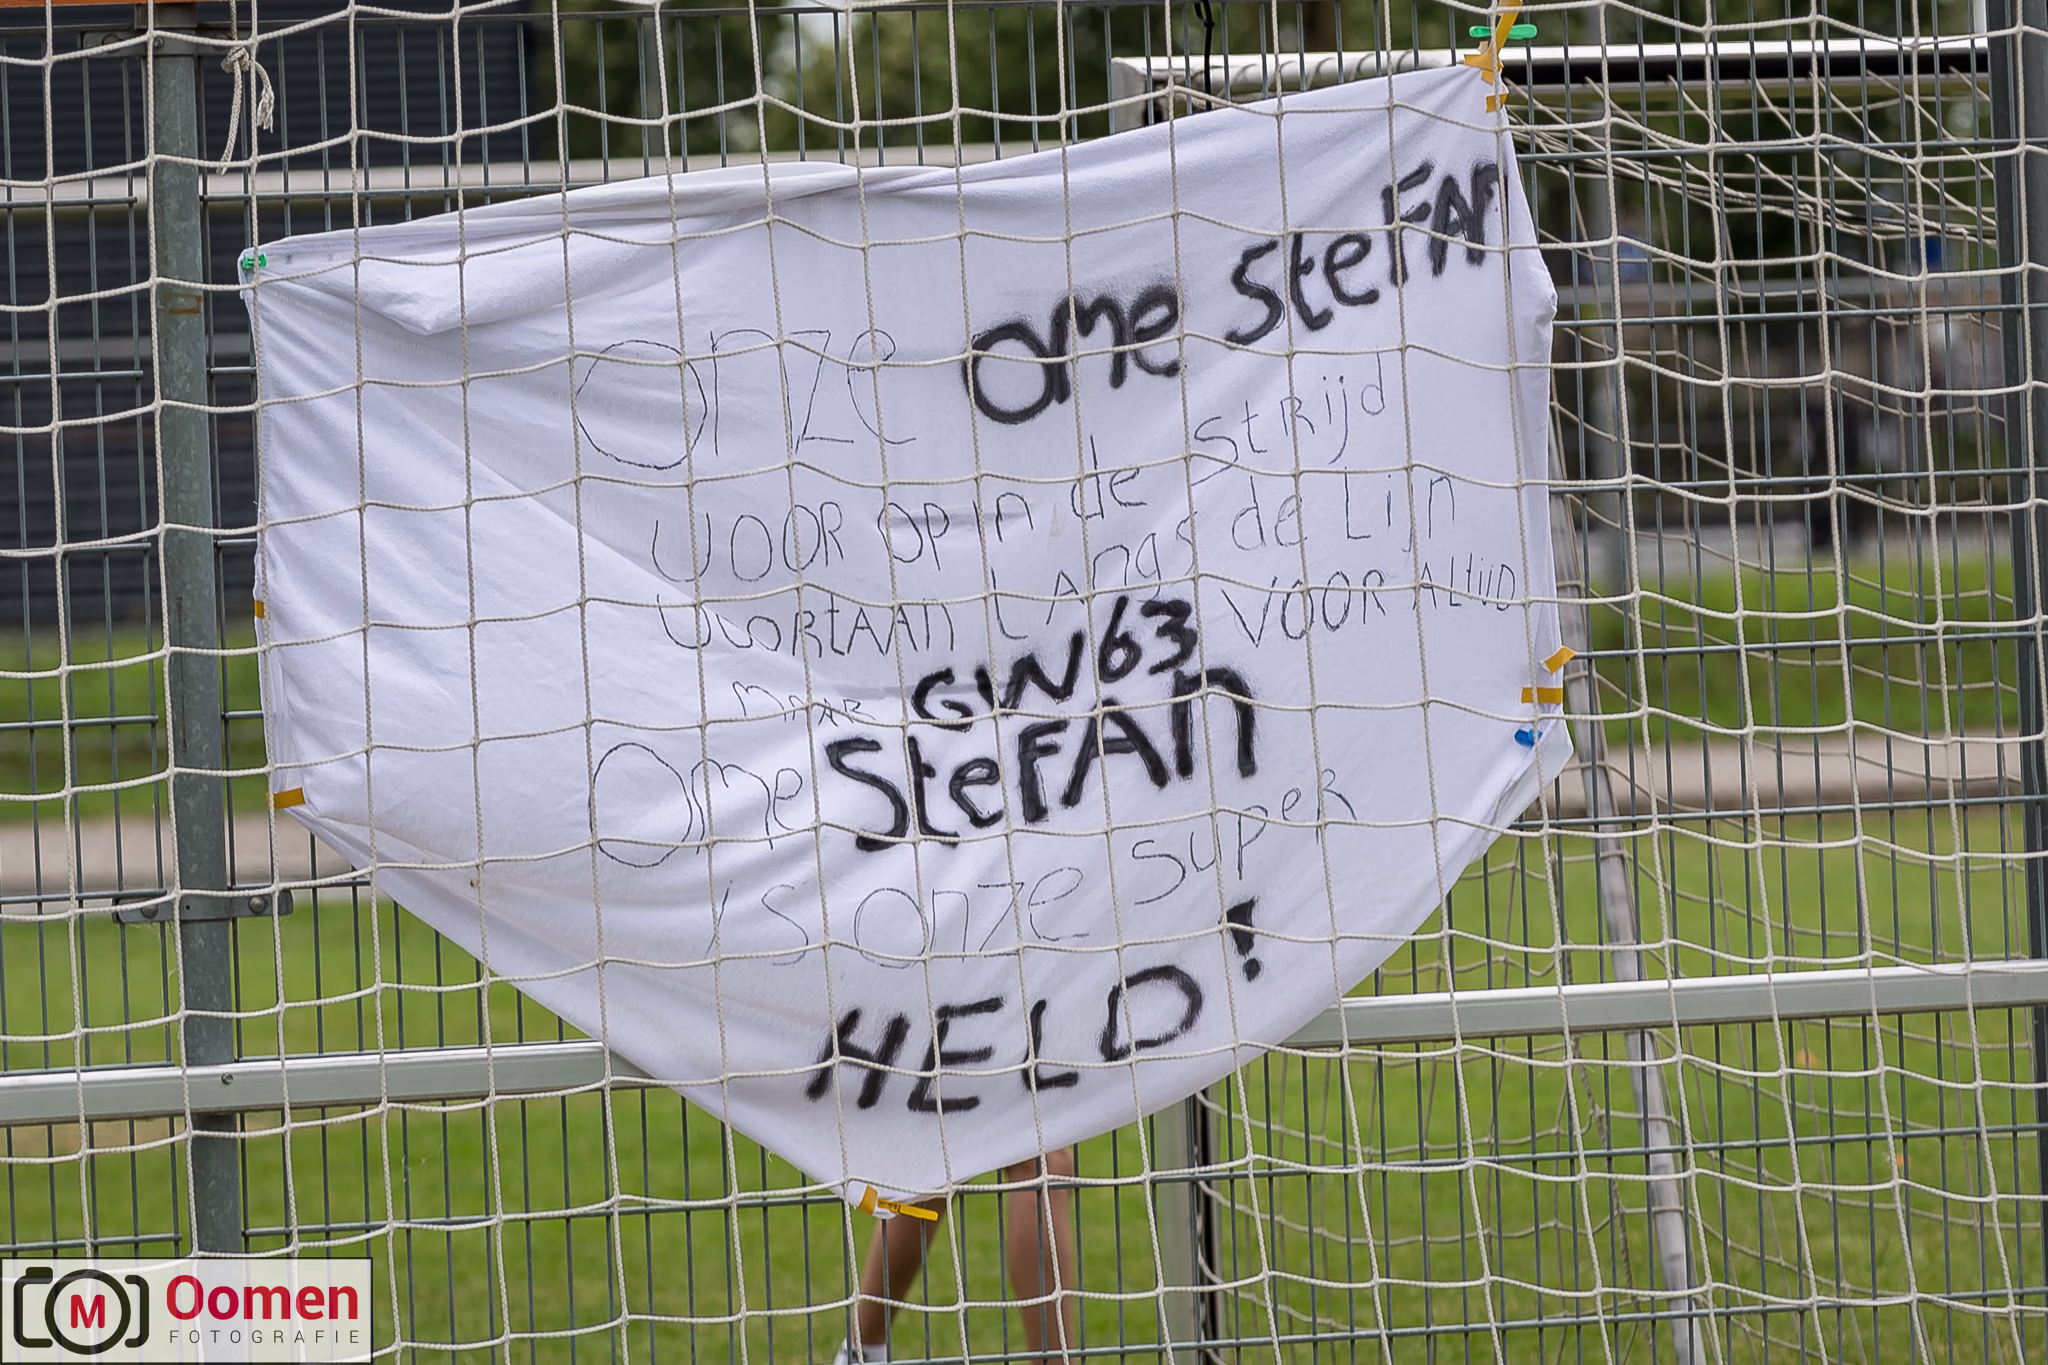 onze ome SteFAn
VOOR OP in de StRijd
VOORtAAn LAngs de Lijn
mAAR GW63 VOOR ALtIJD
Ome SteFAn
is onze SupeR
HELD!
M Oomen
FOTOGRAFIE